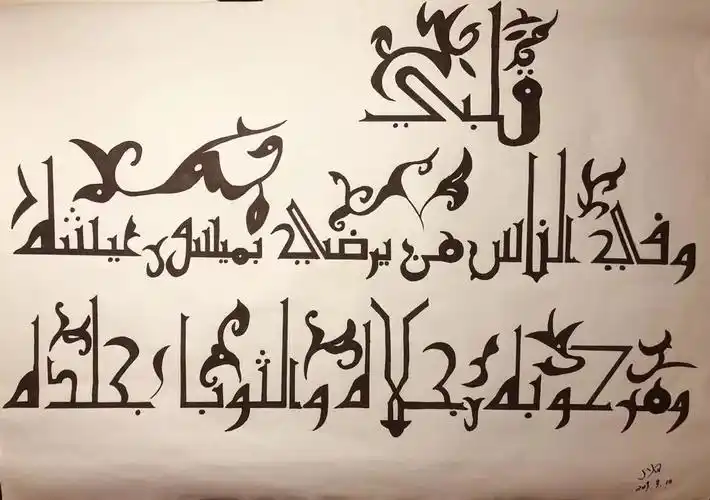 قلبي
وفي الناس من يرضي بميسور عيشه
ومركوبه رجلاه والثوب جلده